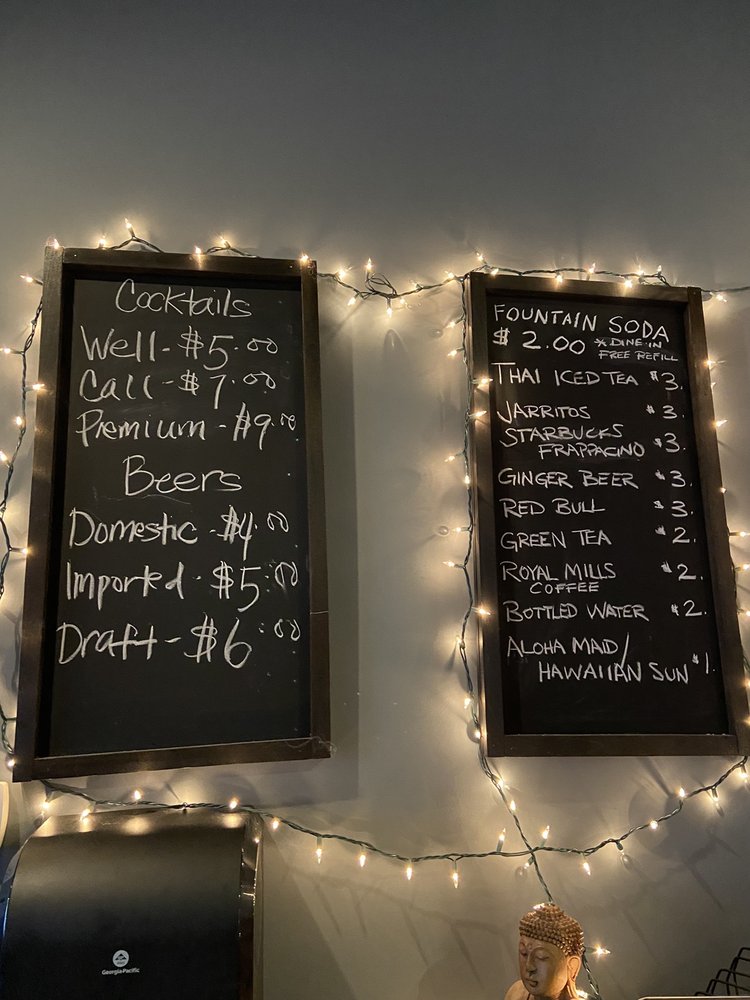 Cocktails
Well - $5.00
Call - $7.00
Premium - $9.00
Beers
Domestic - $4.00
Imported - $5.00
Draft - $6.00
FOUNTAIN SODA
$ 2.00 * DINE-IN
FREE REFILL
THAI ICED TEA $3.
JARRITOS $3.
STARBUCKS
FRAPPACINO $3.
GINGER BEER $3.
RED BULL $3.
GREEN TEA $2.
ROYAL MILLS $2.
COFFEE
BOTTLED WATER $2.
ALOHA MAID/
HAWAIIAN SUN $1.
Georgia-Pacific